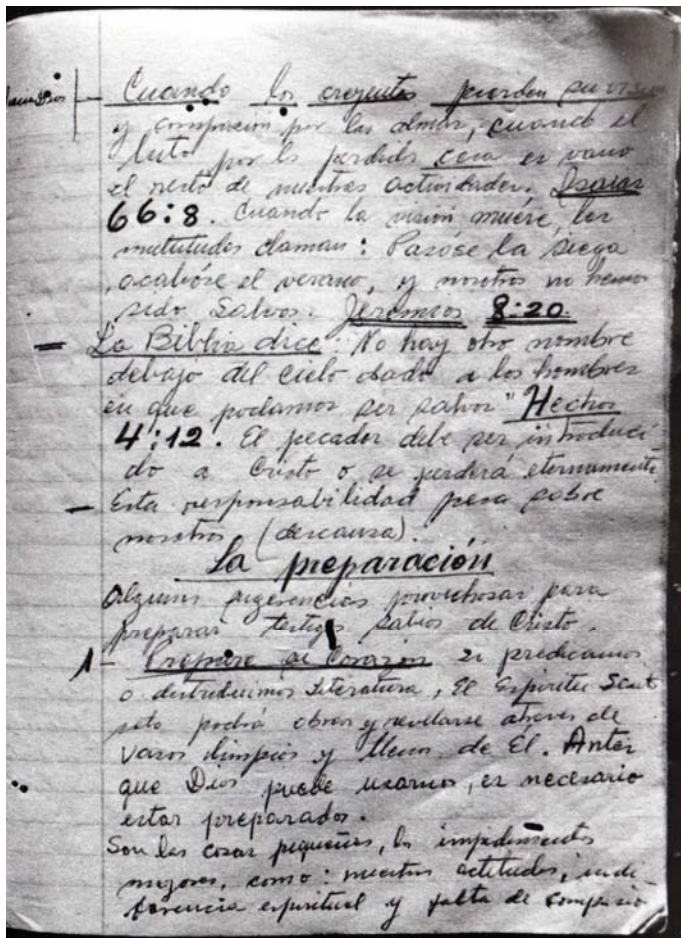 Cuando los creyentes pierden su vision
y compasión por las almas, cuando el
luto por los perdidos cesa es vano
el resto de nuestras actividades. Isaias
66:8. Cuando la visión muere, las
multitudes claman: Pasóse la siega
acabóse el verano, y nosotros no hemos
sido Salvos. Jeremias 8:20.
- La Biblia dice: No hay otro nombre
debajo del cielo dado a los hombres
en que podamos ser salvos" Hechos
4:12. El pecador debe ser introduci
do a Cristo o se perderá eternamente.
- Esta responsabilidad pesa sobre
nosotros (descansa).
La preparación
Algunas sugerencias provechosas para
preparar testigos sabios de Cristo.
1- Prepare su Corazón si predicamos
o distribuimos Literatura, El Espiritu Santo
solo podrá obrar y revelarse atraves de
vasos limpios y llenos de Él. Antes
que Dios puede usarnos, es necesario
estar preparados.
Son las cosas pequeñas, los impedimentos
mayores, como: nuestras actitudes, indi
ferencia espiritual y falta de compasió